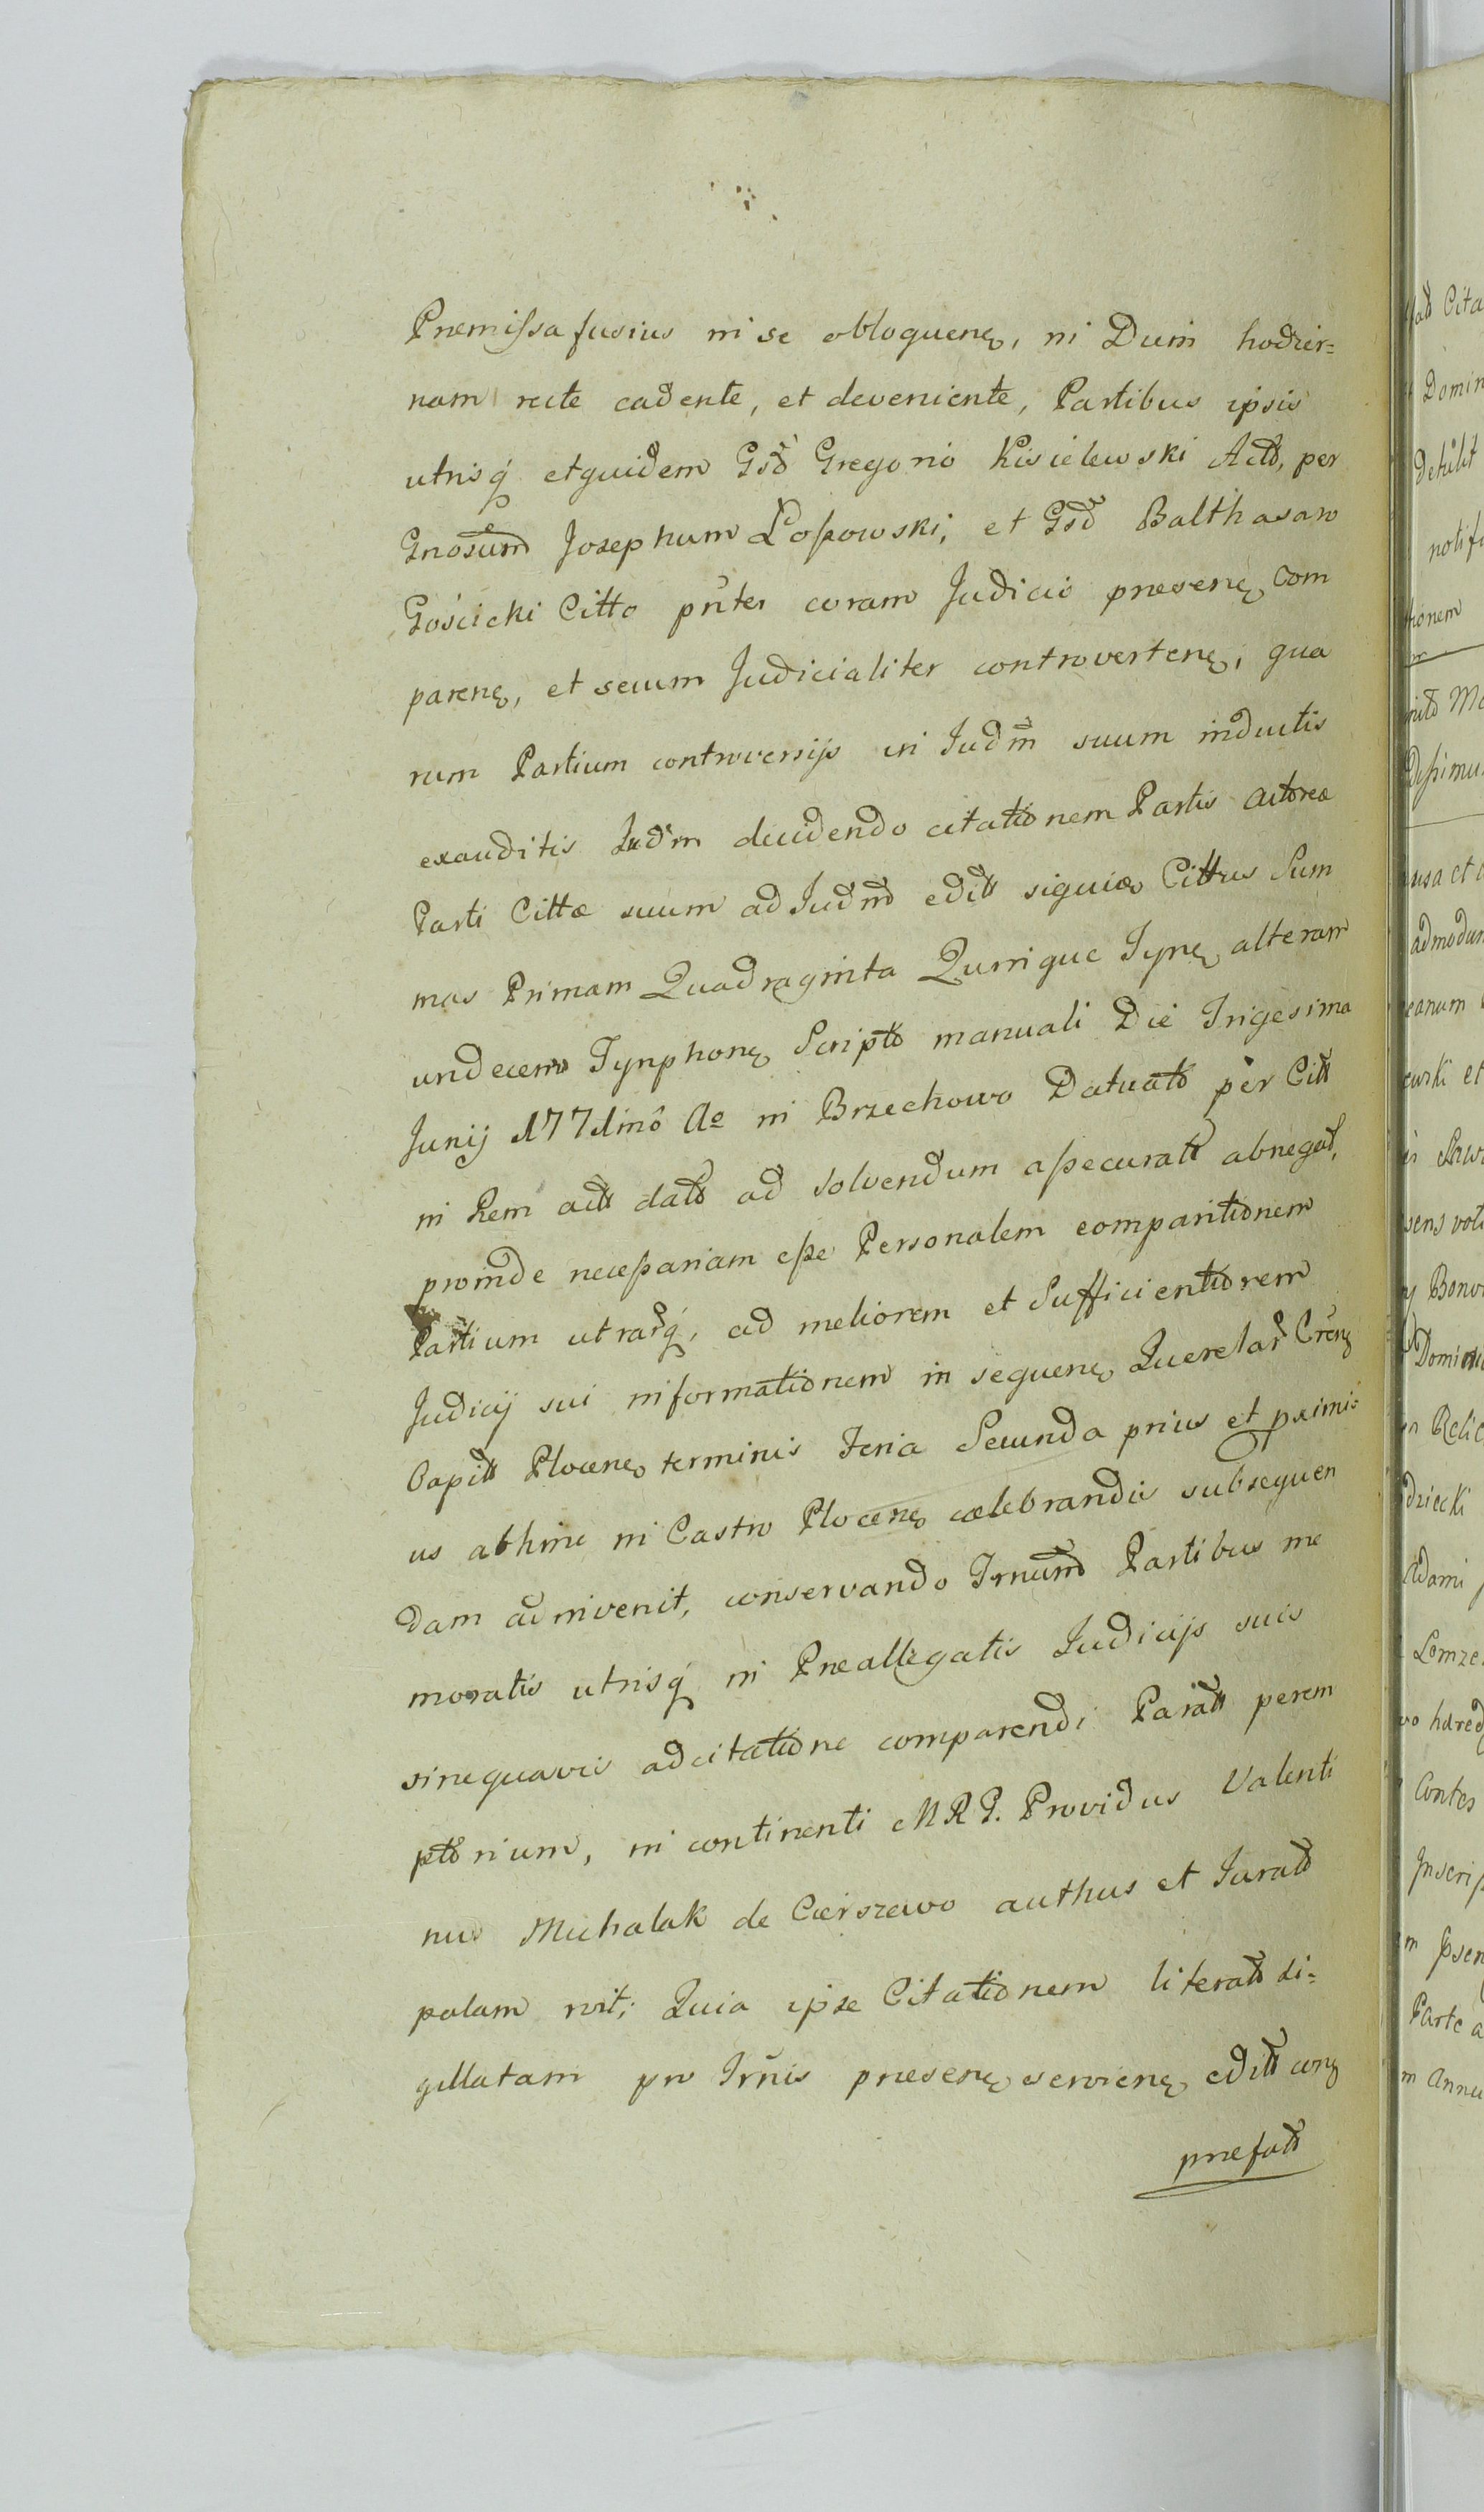 Premissa fusius in se obloquenę, in Dum hodier=
nam recte cadente, et deveniente, Partibus ipsis
utrisq́ et quidem Gsđ Gregorio Kisielewski Actđ, per
Gnosum Josephum Lossowski, et Gsđ Balthasaro
Gościcki Citto pñter coram Judicio presenę Com
parenę, et secum Judicialiter controvertenę, qua
rum Partium controversijs in Judm suum inductis
exauditis Judm decidendo citationem Partis actoreæ
Parti Cittæ suum ad Judm editt siquiæ Cittus Sum
mas Primam Quadraginta Quinque Tynę alteram
undecem Tynphonę Scripto manuali Die Trigesima
Junij 1771mô Aº in Brzechowo Datuato per Citt
in Rem actt dato ad solvendum assecuratt abnegat,
proinde necessariam esse Personalem comparitionem
Partium utrarq́, ad meliorem et Sufficientiorem
Judicij sui informationem in sequenę Querelar Crenę
Capitt Plocenę terminis Feria Secunda prius et primi
us abhinc in Castro Plocenę celebrandis subsequen
dam adinvenit, conservando Trnum Partibus me
moratis utrisq́ in Preallegatis Judicijs suis
sinequavis adcitatione comparendi Paratt perem
ptorium, in continenti MRP. Providus Valenti
nus Michalak de Cierszewo authus et Jurato
palam rvit; Quia ipse Citationem literato si=
gillatam pro Trñis presenę servienę editt conę
prefato
fato Cita
Domin
Detulit
notif
tionem
usa et
admodum
eanum
ewski et
sens
Bonor
Domini
Relic
dziecki
Adami
Lomze
vo hæred
Contes
Inscrip
Parte a
m Annu